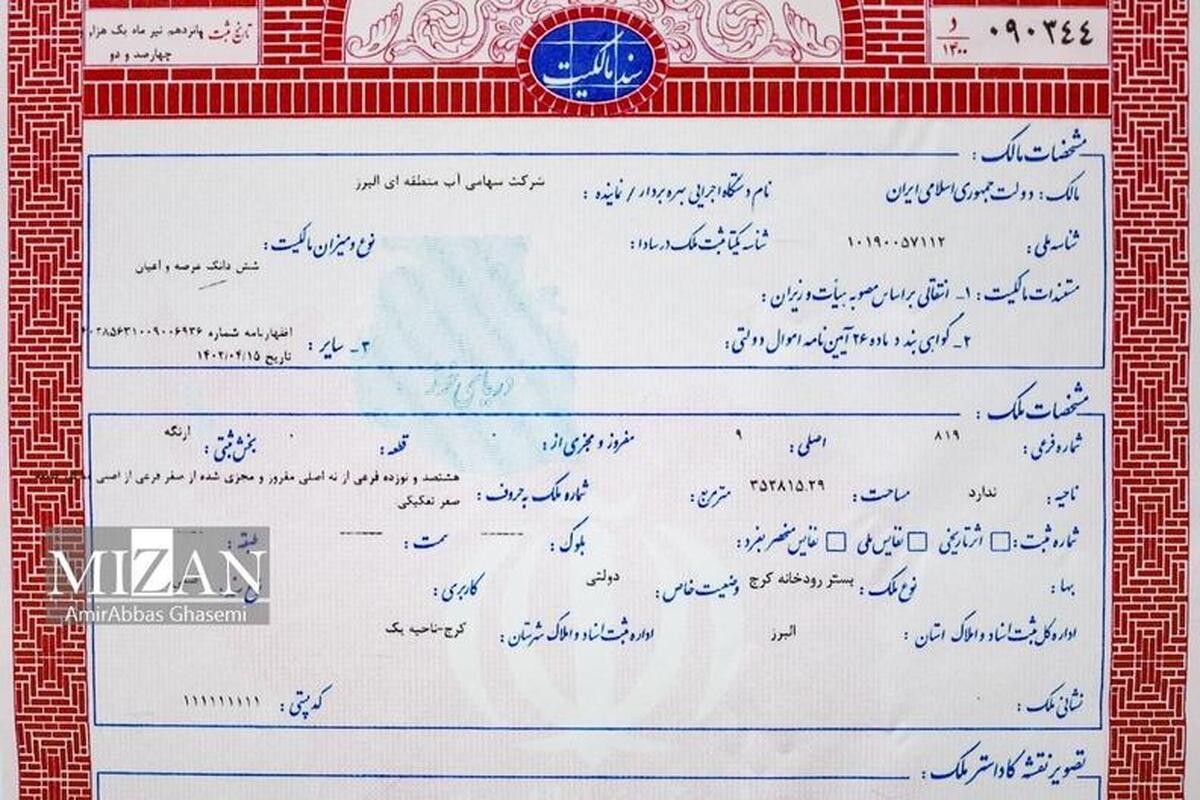 ۰۹۰۳۴۴
د
۱۴۰۰
سند مالکیت
تاریخ ثبت پانزدهم تیر ماه یک هزار
چهارصد و دو
مشخصات مالک :
مالک : دولت جمهوری اسلامی ایران نام دستگاه اجرایی بهره بردار / نماینده : شرکت سهامی آب منطقه ای البرز
شناسه ملی : ۱۰۱۹۰۰۵۷۱۱۲ شناسه یکتا ثبت ملک در سادا : نوع و میزان مالکیت :
شش دانگ عرصه و اعیان
مستندات مالکیت : ۱ـ انتقالی بر اساس مصوبه هیأت وزیران :
۲ـ گواهی بند د ماده ۲۶ آیین نامه اموال دولتی : ۳ـ سایر : اظهارنامه شماره
تاریخ ۱۴۰۲/۰۴/۱۵
دریای نور
مشخصات ملک :
شماره فرعی : ۸۱۹ اصلی : ۹ مفروز و مجزی از : ۰ قطعه : ۰ بخش ثبتی : ارنگه
ناحیه : ندارد مساحت : ۳۵۲۸۱۵.۲۹ مترمربع : شماره ملک به حروف : هشتصد و نوزده فرعی از نه اصلی مفروز و مجزی شده از صفر فرعی از اصلی
صفر تفکیکی
شماره ثبت : اثر تاریخی نفایس ملی نفایس منحصر بفرد : بلوک : ----- سمت : ----- طبقه :
بها : نوع ملک : بستر رودخانه کرج وضعیت خاص : دولتی کاربری :
اداره کل ثبت اسناد و املاک استان : البرز اداره ثبت اسناد و املاک شهرستان : کرج-ناحیه یک
نشانی ملک : کد پستی : ۱۱۱۱۱۱۱۱۱۱
تصویر نقشه کاداستر ملک :
MIZAN
AmirAbbas Ghasemi